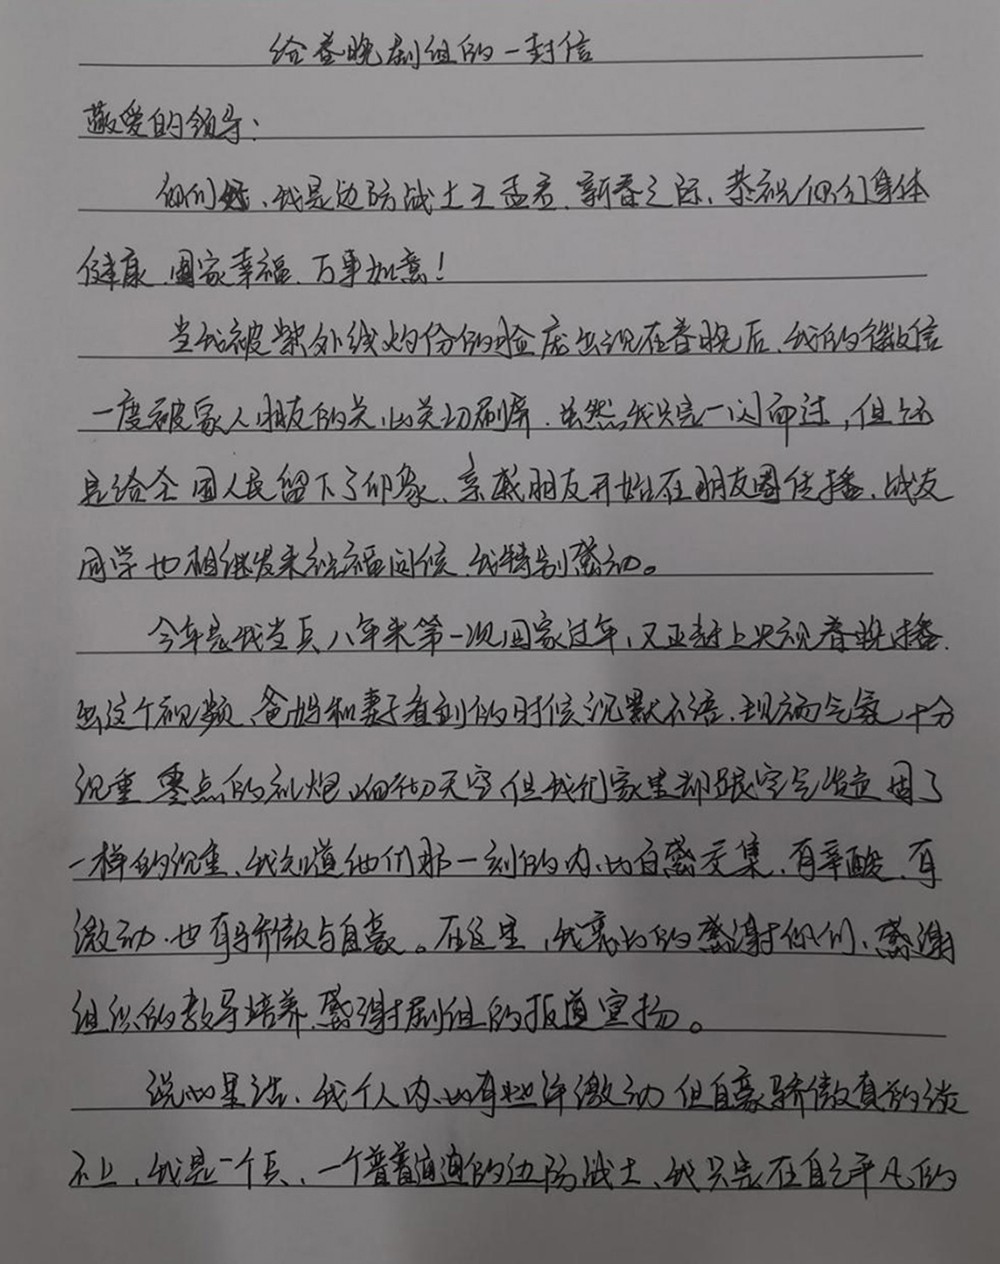 给春晚剧组的一封信
敬爱的领导：
你们好、我是边防战士王孟君、新春之际、恭祝你们身体
健康、阖家幸福、万事如意！
当我被紫外线灼伤的脸庞出现在春晚后、我的微信
一度被家人朋友的关心关切刷屏．虽然我只是一闪而过，但还
是给全国人民留下了印象、亲戚朋友开始在朋友圈传播、战友
同学也相继发来祝福问候、我特别感动。
今年是我当兵八年来第一次回家过年、又正赶上央视春晚播
出这个视频、爸妈和妻子看到的时候沉默不语、现场气氛十分
沉重 零点的礼炮响彻天空 但我们家里却跟空气凝固了
一样的沉重、我知道他们那一刻的内心百感交集、有辛酸、有
激动、也有骄傲与自豪。在这里，我衷心的感谢你们、感谢
组织的教导培养、感谢剧组的报道宣扬。
说心里话、我个人内心有些许激动 但自豪骄傲真的谈
不上、我是一个兵、一个普普通通的边防战士、我只是在自己平凡的